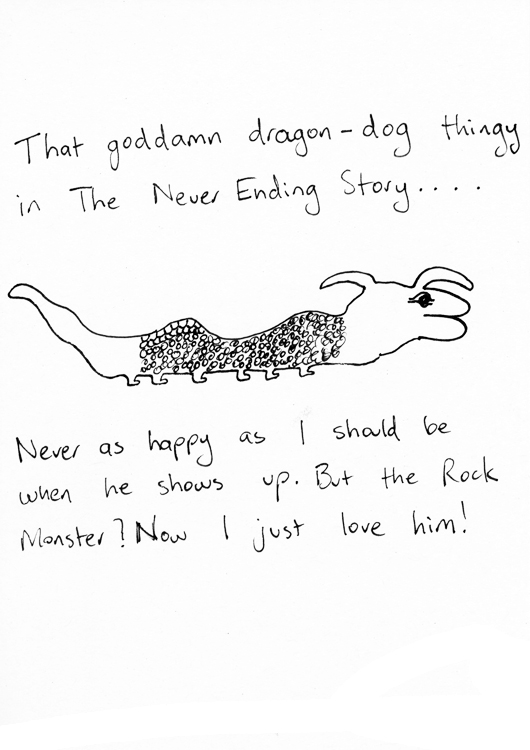 That goddamn dragon-dog thingy
in The Never Ending Story....
Never as happy as I should be
when he shows up. But the Rock
Monster? Now I just love him!